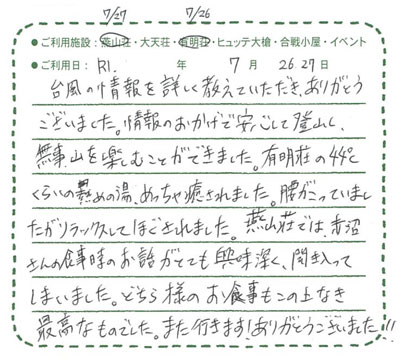 7/27 7/26
●ご利用施設：燕山荘・大天荘・有明荘・ヒュッテ大槍・合戦小屋・イベント
●ご利用日：R1. 年 7月 26.27日
台風の情報を詳しく教えていただき、ありがとう
ございました。情報のおかげで安心して登山し、
無事、山を楽しむことができました。有明荘の44℃
くらいの熱めの湯、めっちゃ癒されました。腰がこっていまし
たがリラックスしてほぐされました。燕山荘では、赤沼
さんの食事時のお話がとても興味深く、聞き入って
しまいました。どちら様のお食事もこの上なき
最高なものでした。また行きます!ありがとうございました!!